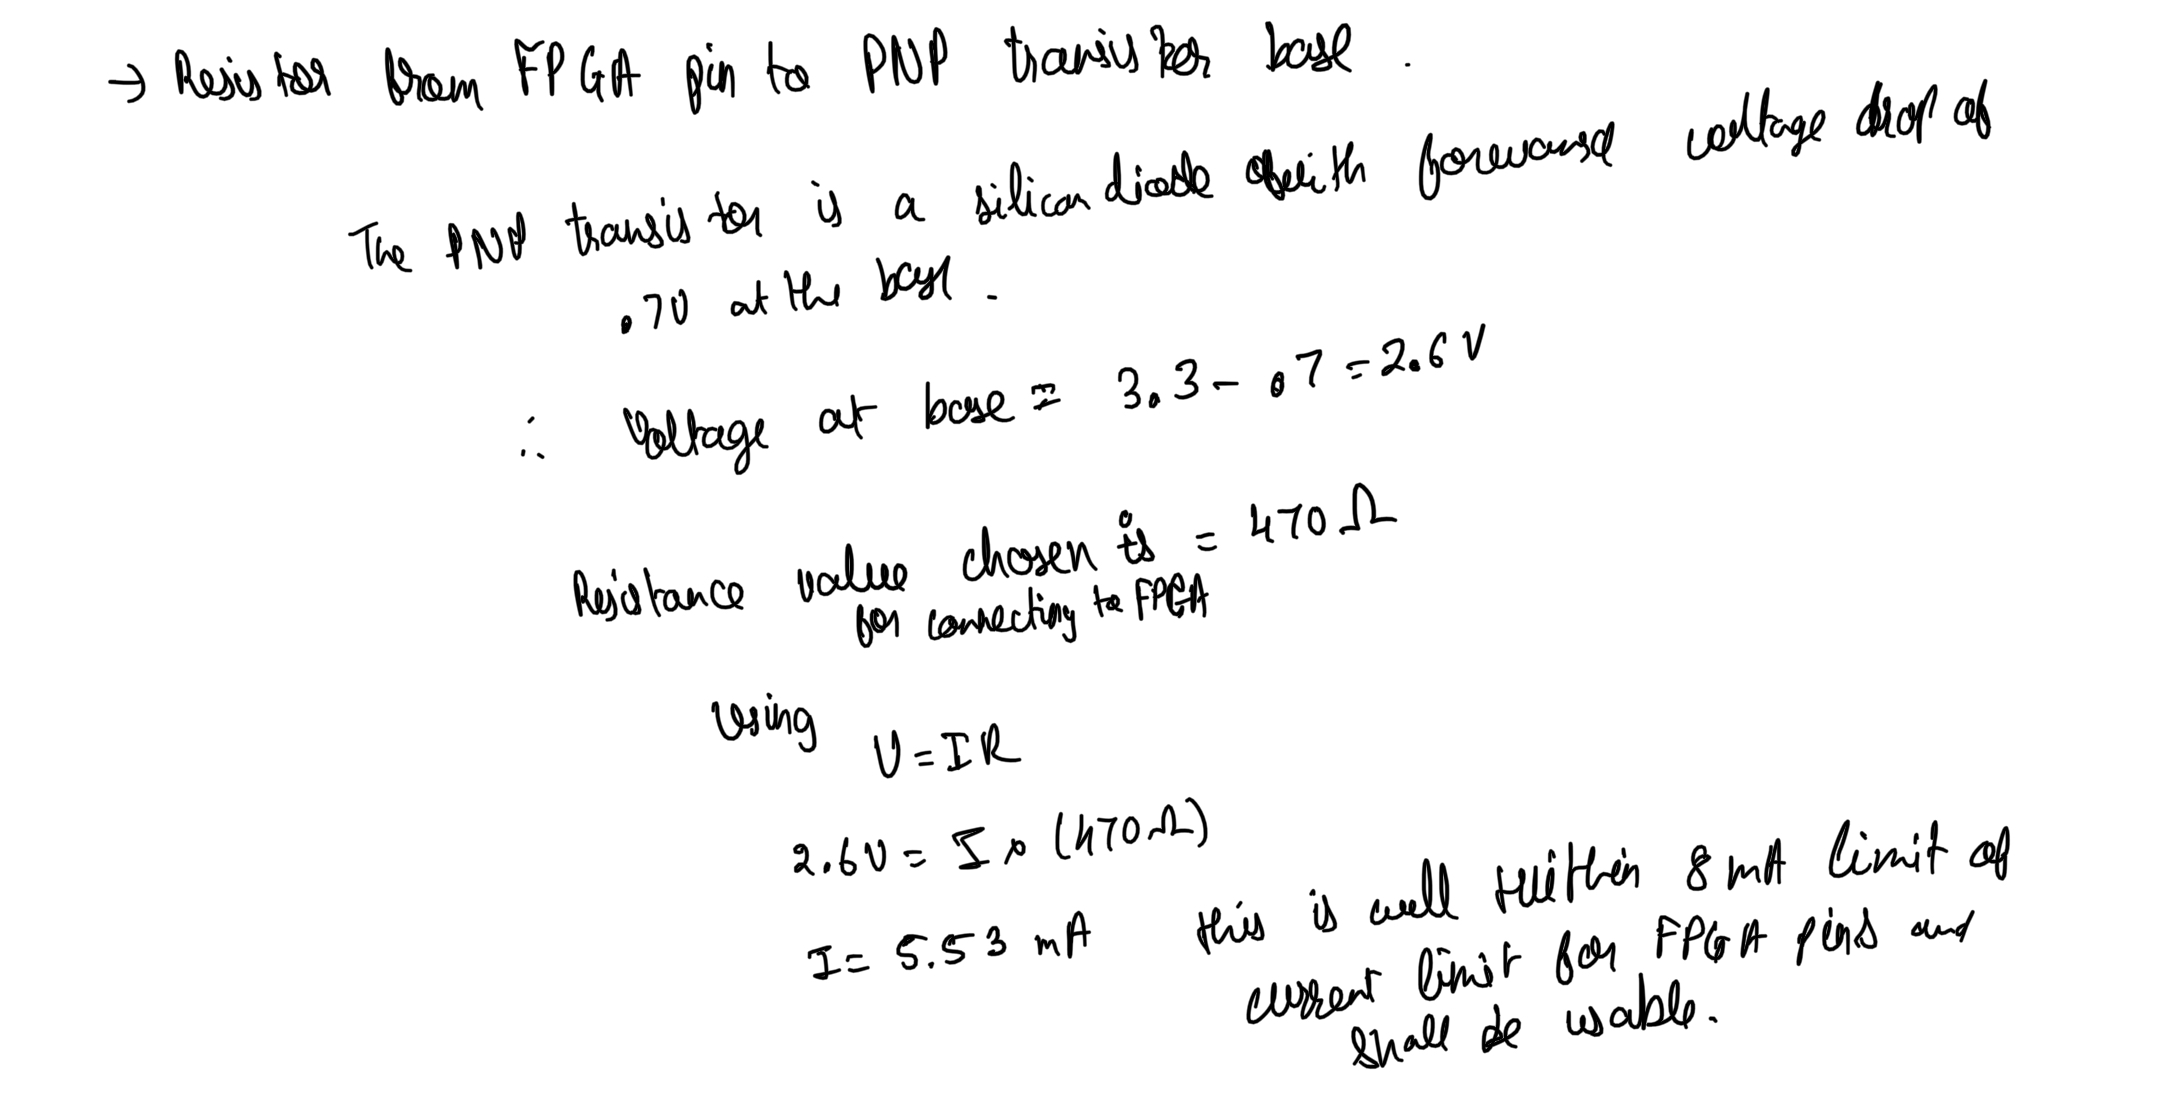 → Resistor from FPGA pin to PNP transistor base.
The PNP transistor is a silicon diode with forward voltage drop of
.7V at the base.
∴ Voltage at base = 3.3 - .7 = 2.6 V
Resistance value chosen is = 470 Ω
for connecting to FPGA
Using
V = IR
2.6V = I × (470Ω)
I = 5.53 mA this is well within 8 mA limit of
current limit for FPGA pins and
shall be usable.